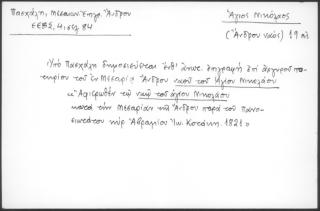 Πασχάλη, Μεσαιων. Ἐπιγρ. Ἄνδρου
ΕΕΒΣ, 4, σελ 84
Ἅγιος Νικόλαος
(Ἄνδρου ναός) 19 αἰ
Ὑπὸ Πασχάλη δημοσιεύεται ἐπιγραφὴ ἐπὶ ἀργυροῦ πο-
τηρίου τοῦ ἐν Μεσαριᾷ Ἄνδρου ναοῦ τοῦ Ἁγίου Νικολάου
« Ἀφιερώθη τῷ ναῷ τοῦ ἁγίου Νικολάου
κατὰ τὴν Μεσαρίαν τῆς Ἄνδρου παρὰ τοῦ Πανο-
σιωτάτου κὺρ Ἀβραμίου Ἰω. Κοτάκη. 1821 »